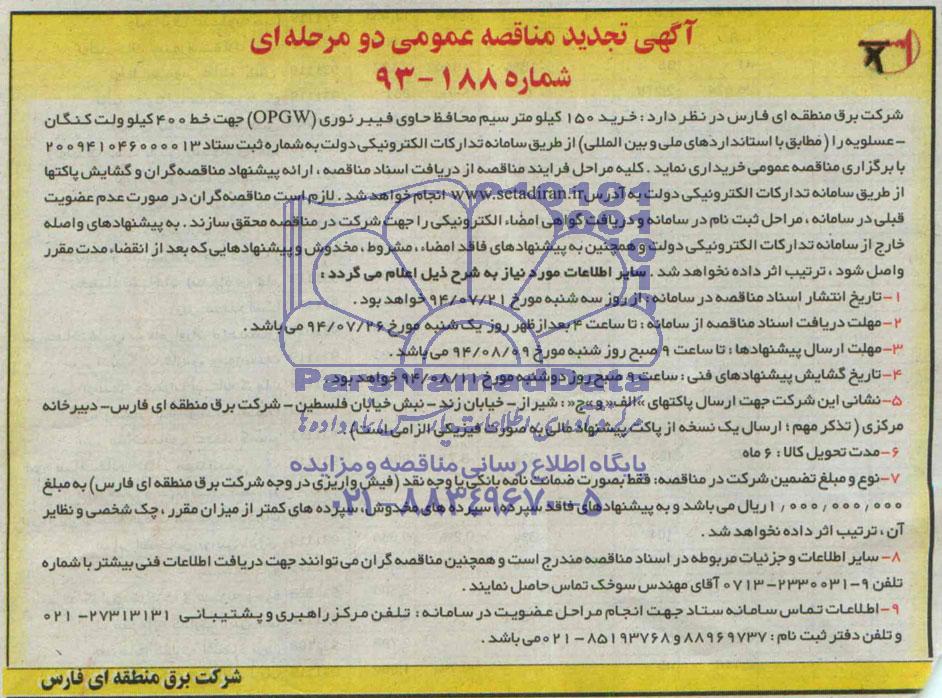 آگهی تجدید مناقصه عمومی دو مرحله ای
شماره ۱۸۸-۹۳
شرکت برق منطقه ای فارس در نظر دارد: خرید ۱۵۰ کیلومتر سیم محافظ حاوی فیبر نوری (OPGW) جهت خط ۴۰۰ کیلو ولت کنگان
-عسلویه را (مطابق با استانداردهای ملی و بین المللی) از طریق سامانه تدارکات الکترونیکی دولت به شماره ثبت ستاد ۲۰۰۹۴۱۰۴۶۰۰۰۰۱۳
با برگزاری مناقصه عمومی خریداری نماید. کلیه مراحل فرایند مناقصه از دریافت اسناد مناقصه، ارائه پیشنهاد مناقصه گران و گشایش پاکتها
از طریق سامانه تدارکات الکترونیکی دولت به آدرس www.setadiran.ir انجام خواهد شد. لازم است مناقصه گران در صورت عدم عضویت
قبلی در سامانه، مراحل ثبت نام در سامانه و دریافت گواهی امضاء الکترونیکی را جهت شرکت در مناقصه محقق سازند. به پیشنهادهای واصله
خارج از سامانه تدارکات الکترونیکی دولت و همچنین به پیشنهادهای فاقد امضاء، مشروط، مخدوش و پیشنهادهایی که بعد از انقضاء مدت مقرر
واصل شود، ترتیب اثر داده نخواهد شد. سایر اطلاعات مورد نیاز به شرح ذیل اعلام می گردد:
۱-تاریخ انتشار اسناد مناقصه در سامانه: از روز سه شنبه مورخ ۹۴/۰۷/۲۱ خواهد بود.
۲-مهلت دریافت اسناد مناقصه از سامانه: تا ساعت ۴ بعدازظهر روز یک شنبه مورخ ۹۴/۰۷/۲۶ می باشد.
۳-مهلت ارسال پیشنهادها: تا ساعت ۹ صبح روز شنبه مورخ ۹۴/۰۸/۰۹ می باشد.
۴-تاریخ گشایش پیشنهادهای فنی: ساعت ۹ صبح روز دوشنبه مورخ ۹۴/۰۸/۱۱ خواهد بود.
۵-نشانی این شرکت جهت ارسال پاکتهای »الف« و »ج«: شیراز- خیابان زند- نبش خیابان فلسطین- شرکت برق منطقه ای فارس- دبیرخانه
مرکزی (تذکر مهم: ارسال یک نسخه از پاکت پیشنهاد مالی به صورت فیزیکی الزامی است).
۶-مدت تحویل کالا: ۶ ماه
۷-نوع و مبلغ تضمین شرکت در مناقصه: فقط بصورت ضمانت نامه بانکی یا وجه نقد (فیش واریزی در وجه شرکت برق منطقه ای فارس) به مبلغ
۱,۰۰۰,۰۰۰,۰۰۰ ریال می باشد و به پیشنهادهای فاقد سپرده، سپرده های مخدوش، سپرده های کمتر از میزان مقرر، چک شخصی و نظایر
آن، ترتیب اثر داده نخواهد شد.
۸-سایر اطلاعات و جزئیات مربوطه در اسناد مناقصه مندرج است و همچنین مناقصه گران می توانند جهت دریافت اطلاعات فنی بیشتر با شماره
تلفن ۹-۲۳۳۰۰۳۱-۰۷۱۳ آقای مهندس سوخک تماس حاصل نمایند.
۹-اطلاعات تماس سامانه ستاد جهت انجام مراحل عضویت در سامانه: تلفن مرکز راهبری و پشتیبانی ۲۷۳۱۳۱۳۱-۰۲۱
و تلفن دفتر ثبت نام: ۸۸۹۶۹۷۳۷ و ۸۵۱۹۳۷۶۸-۰۲۱ می باشد.
شرکت برق منطقه ای فارس
ParsNamadData
پایگاه اطلاع رسانی مناقصه و مزایده
۰۲۱-۸۸۳۴۹۶۷۰-۵